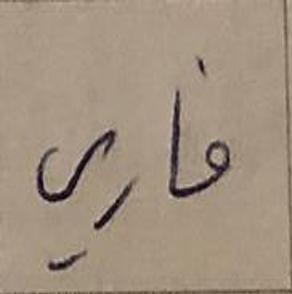 فاري